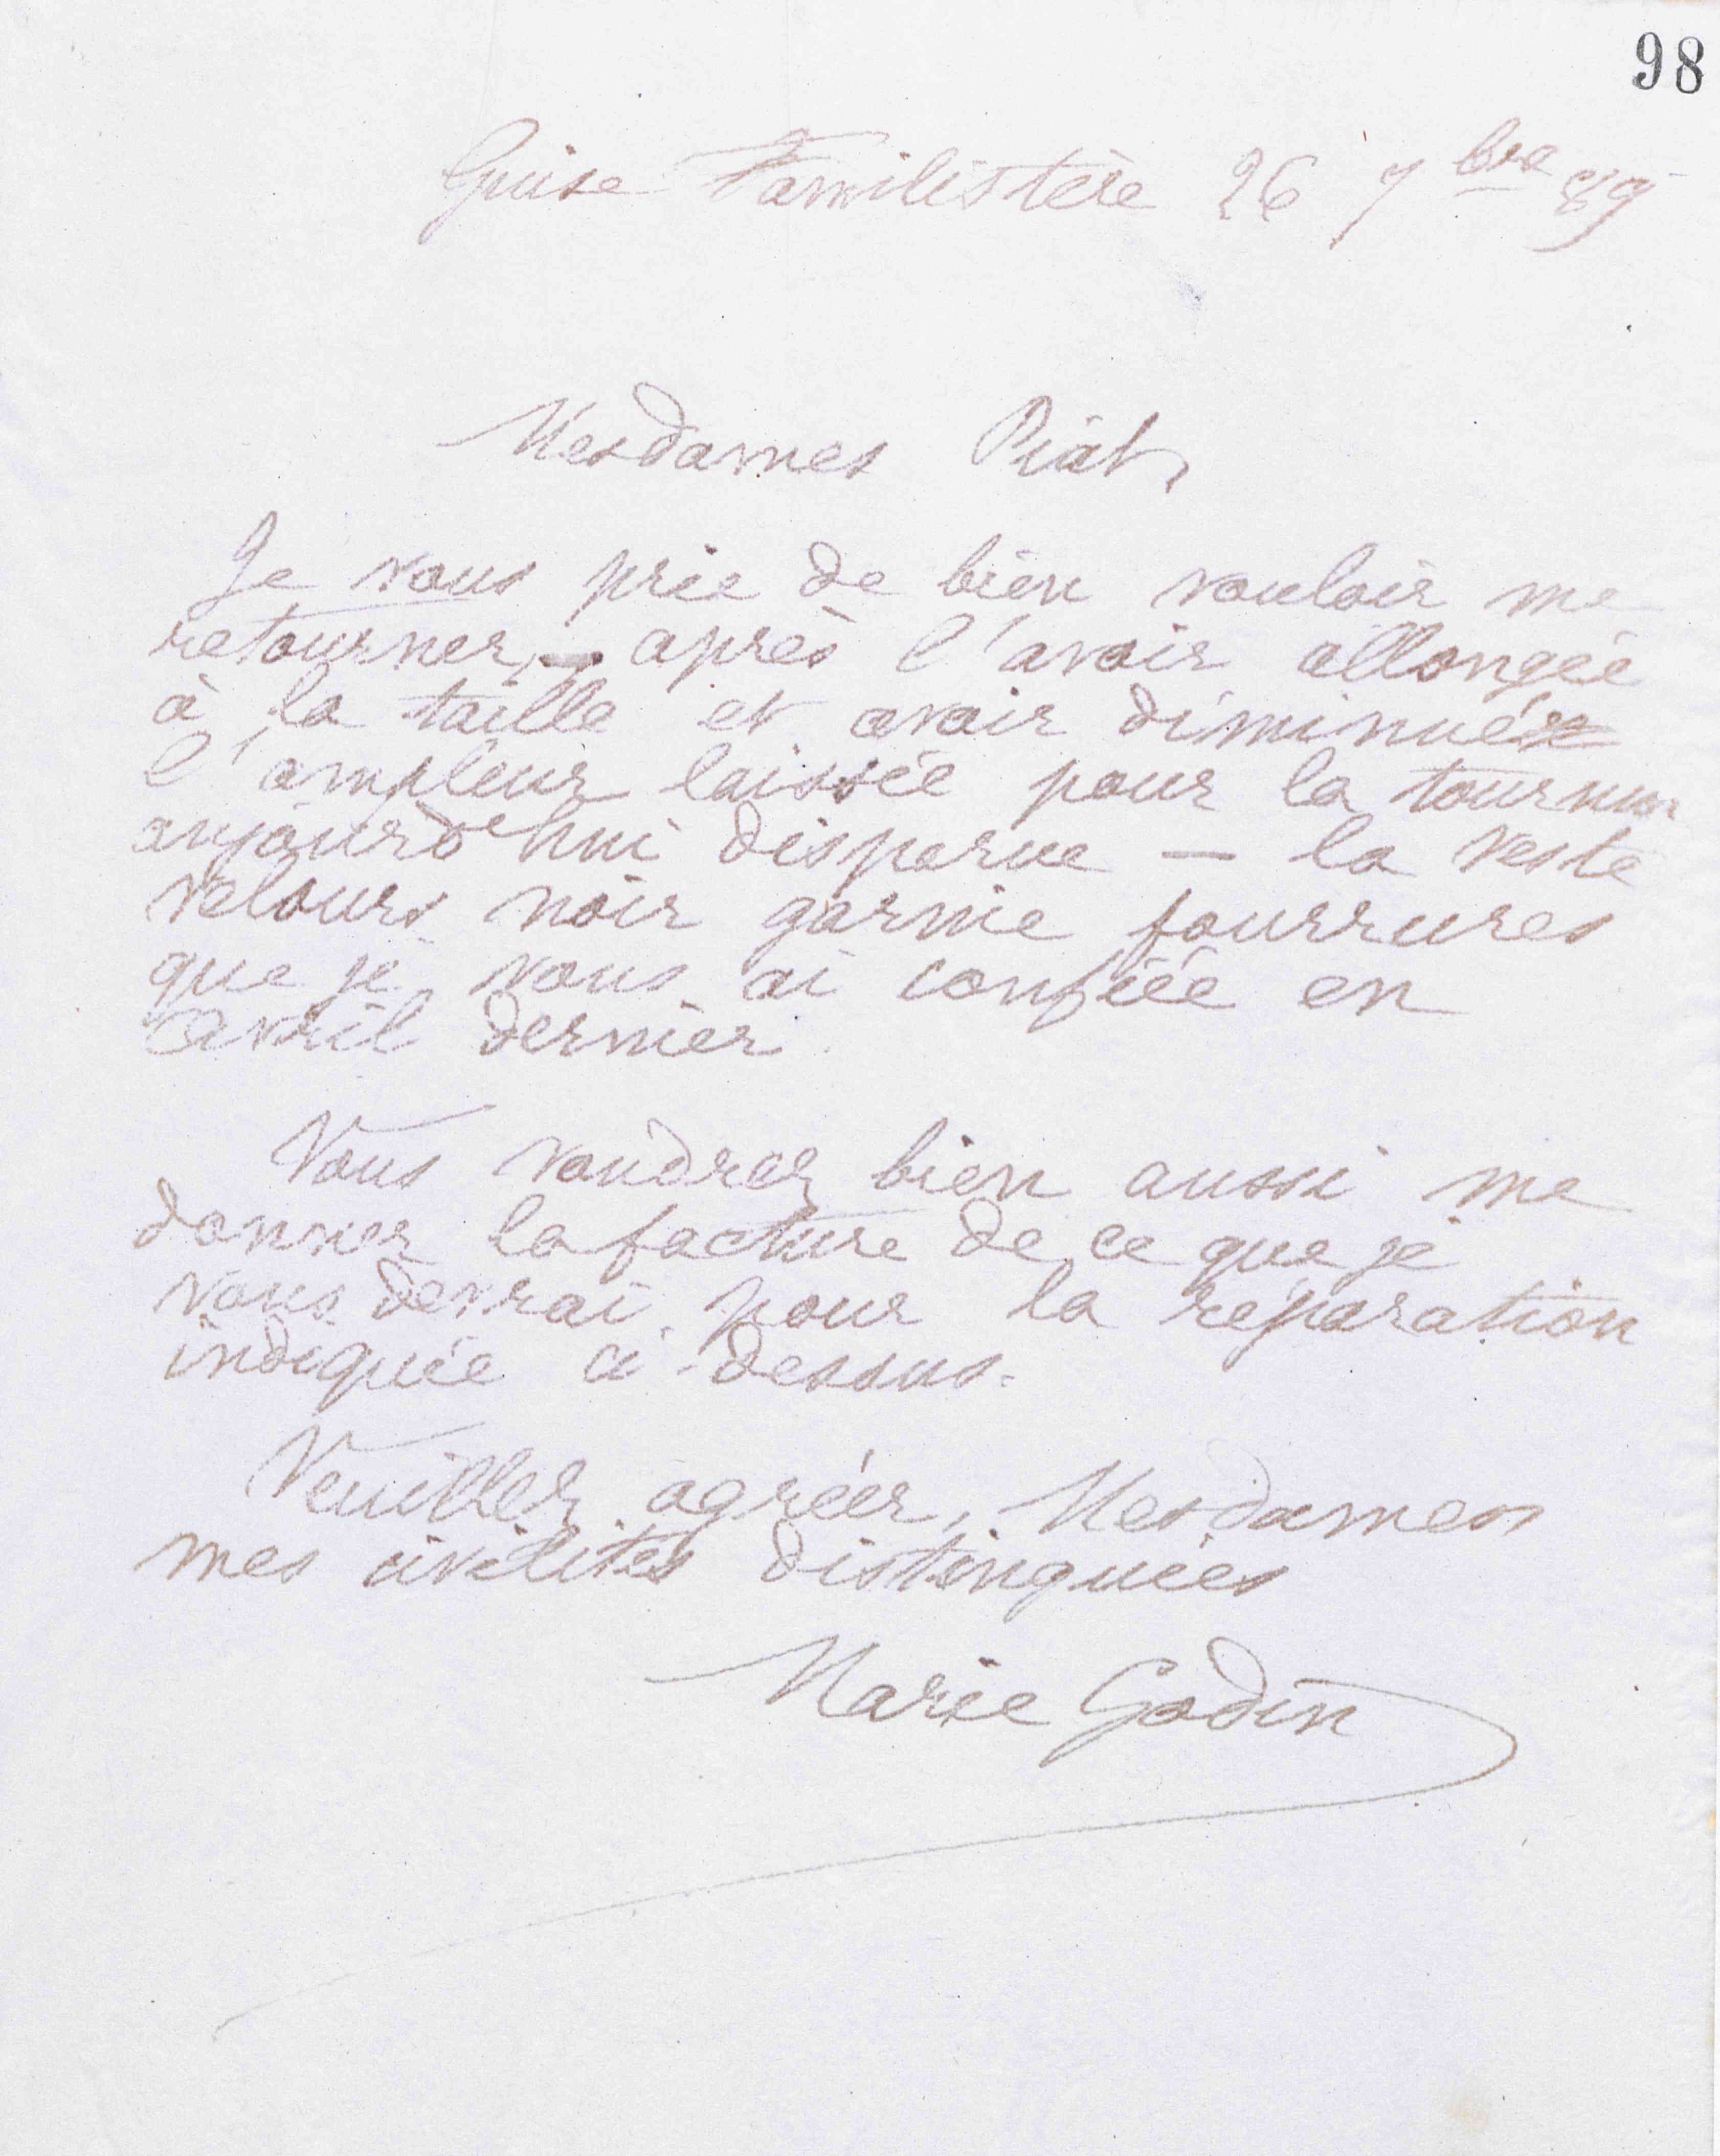 98
Guise Familistère 26 7bre 89
Mesdames Piat,
Je vous prie de bien vouloir me
retourner, – après l'avoir allongée
à la taille et avoir diminué
l'ampleur laissée pour la tournure
aujourd'hui disparue — la veste
velours noir garnie fourrures
que je vous ai confiée en
avril dernier.
Vous voudrez bien aussi me
donner la facture de ce que je
vous devrai pour la réparation
indiquée ci-dessus.
Veuillez agréer, Mesdames
mes civilités distinguées
Marie Godin